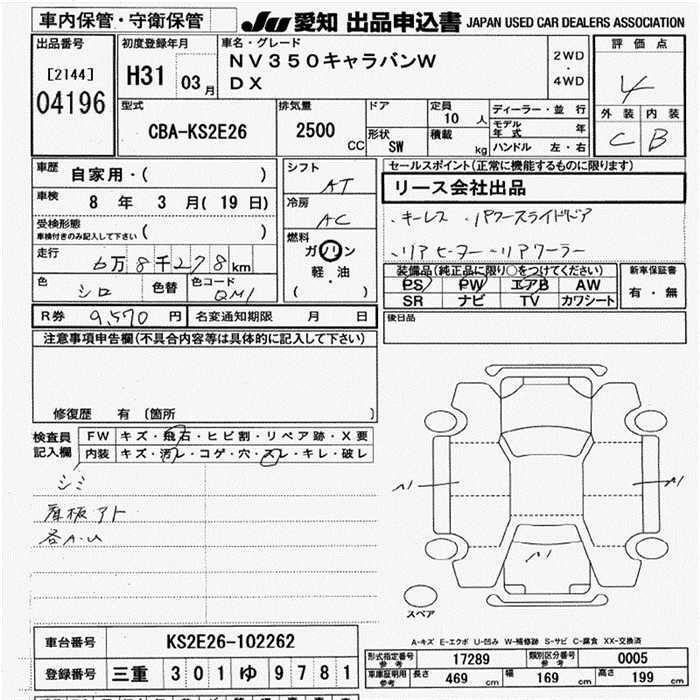 車内保管・守衛保管 JU 愛知 出品申込書 JAPAN USED CAR DEALERS ASSOCIATION
出品番号 [2144] 04196
初度登録年月 H31 03月
車名・グレード NV350キャラバンW DX
2WD・4WD
評価点 4
外装 C 内装 B
型式 CBA-KS2E26
排気量 2500 CC
ドア 形状 SW
定員 10人 積載 kg
ディーラー・並行
モデル年式 年
ハンドル 左・右
車歴 自家用・( )
車検 8年 3月(19日)
受検形態 車検付きのみ記入して下さい ( )
走行 6万8千278km
色 シロ 色替 色コード QM1
シフト AT
冷房 AC
燃料 ガソリン 軽・油 ( )
セールスポイント(正常に機能するものに限ります)
リース会社出品
・キーレス ・パワースライドドア
・リアヒーター・リアクーラー
装備品(純正品に限り○をつけてください)
PS PW エアB AW
SR ナビ TV カワシート
新車保証書 有・無
R券 9,570円 名変通知期限 月 日
後日品
注意事項申告欄(不具合内容等は具体的に記入して下さい)
修復歴 有 〔箇所 〕
検査員記入欄
FW キズ・飛石・ヒビ割・リペア跡・X要
内装 キズ・汚レ・コゲ・穴・スレ・キレ・破レ
シミ
看板アト
各A.U
A1 A1
A1
スペア
A-キズ E-エクボ U-凹み W-補修跡 S-サビ C-腐食 XX-交換済
車台番号 KS2E26-102262
登録番号 三重 301 ゆ 9781
形式指定番号 参考 17289 類別区分番号 参考 0005
車庫証明用 参考 長さ 469 cm 幅 169 cm 高さ 199 cm